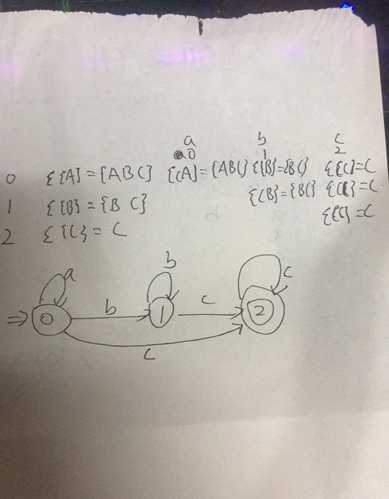 a b c
0 1 2
0 ε{A} = {ABC} ε{A} = {ABC} ε{B} = {BC} ε{C} = C
1 ε{B} = {B C} ε{B} = {BC} ε{C} = C
2 ε{C} = C ε{C} = C
a b c
⇒ 0 b 1 c 2
c